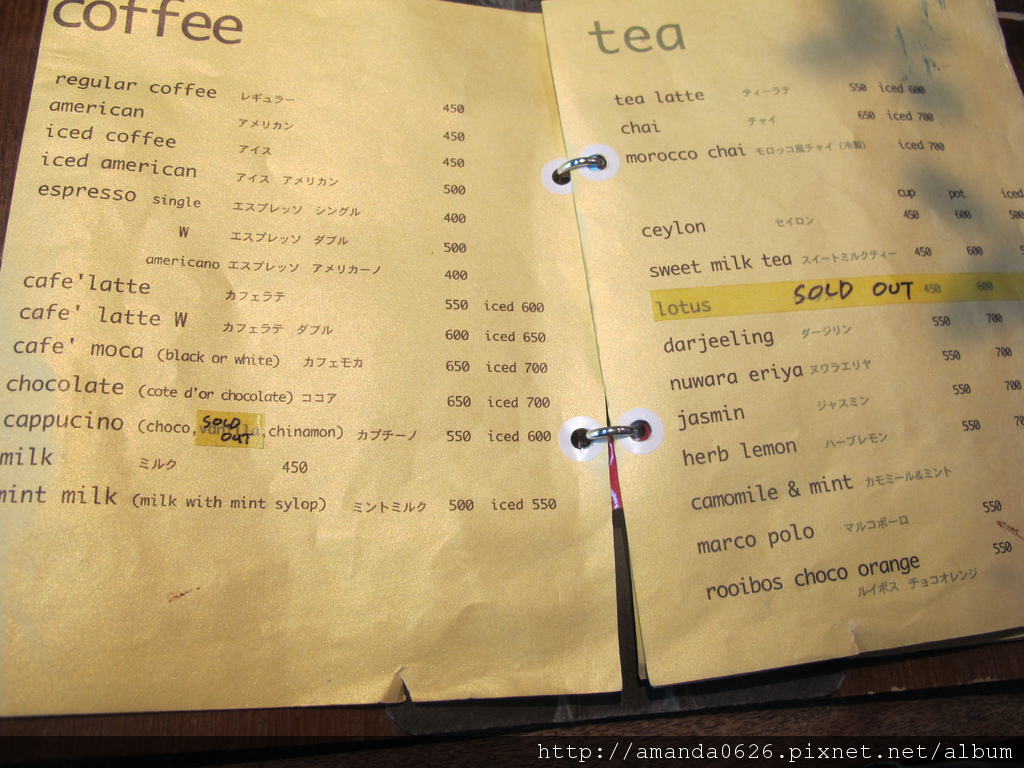 coffee
regular coffee レギュラー 450
american アメリカン 450
iced coffee アイス 450
iced american アイス アメリカン 500
espresso single エスプレッソ シングル 400
W エスプレッソ ダブル 500
americano エスプレッソ アメリカーノ 400
cafe'latte カフェラテ 550 iced 600
cafe' latte W カフェラテ ダブル 600 iced 650
cafe' moca (black or white) カフェモカ 650 iced 700
chocolate (cote d'or chocolate) ココア 650 iced 700
cappucino (choco, SOLD OUT ,chinamon) カプチーノ 550 iced 600
milk ミルク 450
mint milk (milk with mint sylop) ミントミルク 500 iced 550
tea
tea latte ティーラテ 550 iced 600
chai チャイ 650 iced 700
morocco chai モロッコ風チャイ (冷製) iced 700
cup pot iced
ceylon セイロン 450 600 500
sweet milk tea スイートミルクティー 450 600
lotus SOLD OUT 450 600
darjeeling ダージリン 550 700
nuwara eriya ヌワラエリヤ 550 700
jasmin ジャスミン 550 700
herb lemon ハーブレモン 550
camomile & mint カモミール&ミント
marco polo マルコポーロ 550
rooibos choco orange 550
ルイボス チョコオレンジ
http://amanda0626.pixnet.net/album